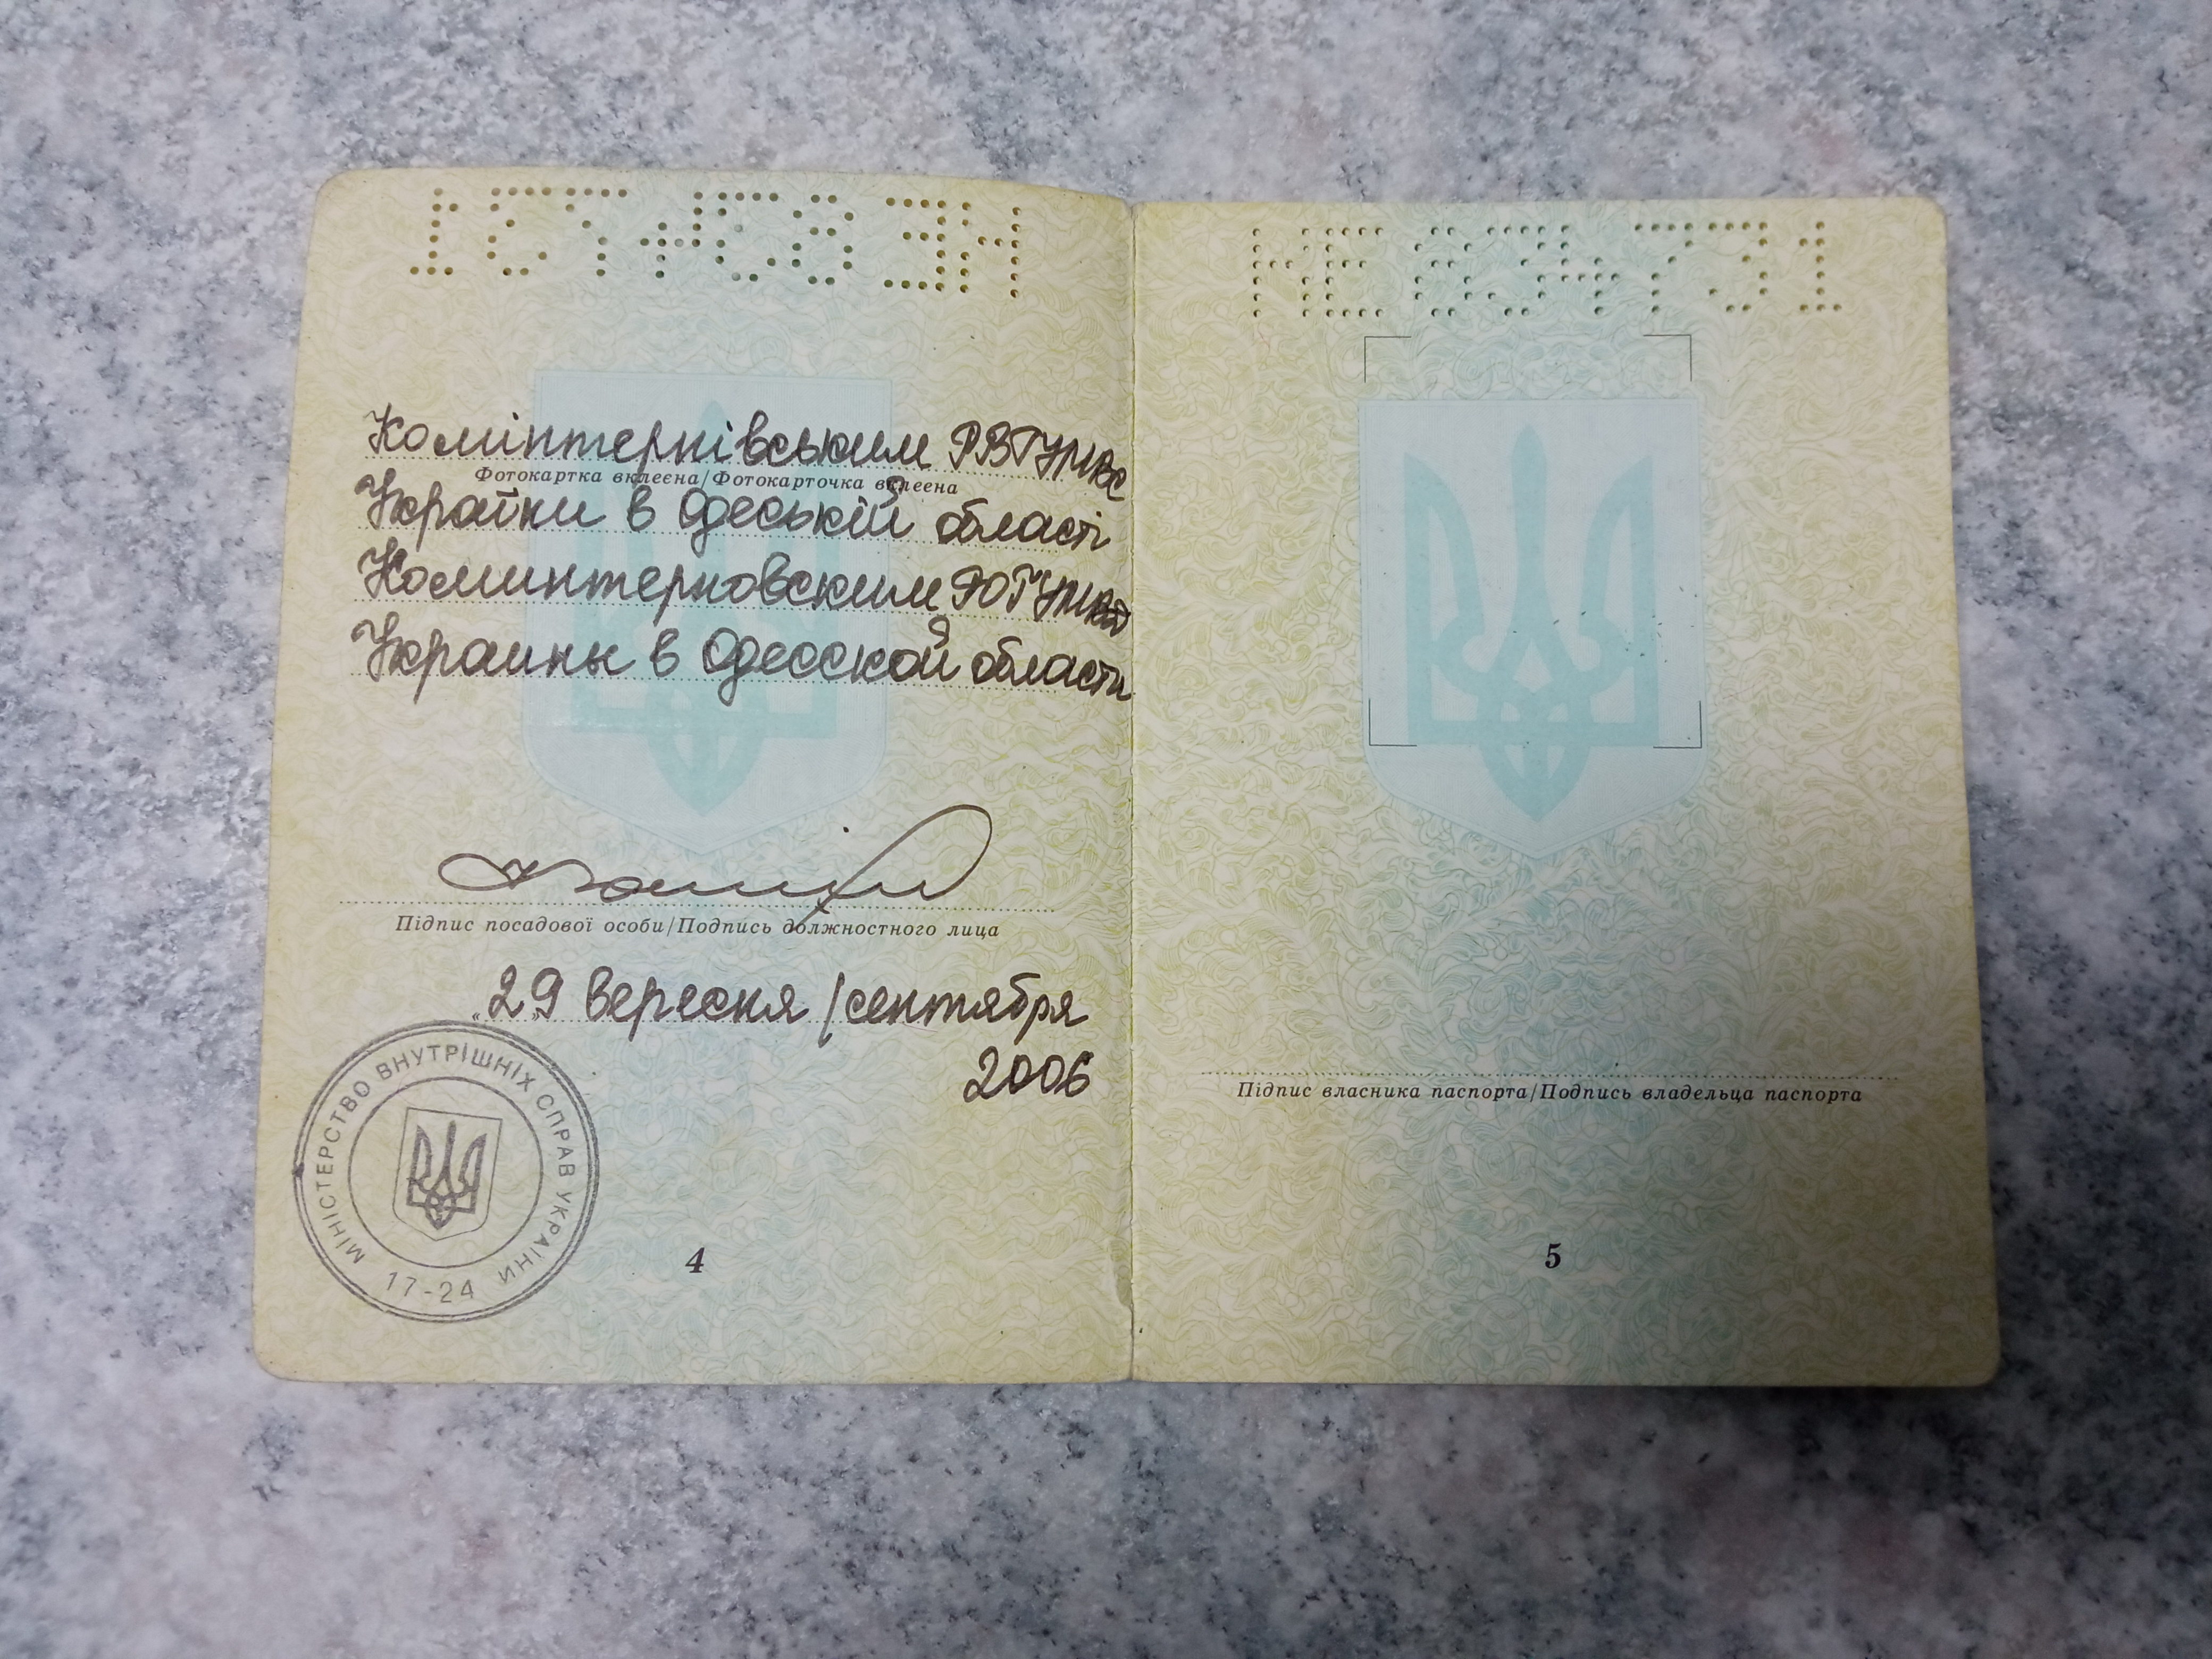 Комінтернівським РВГУМВС
Фотокартка вклеєна/Фотокарточка вклеена
України в Одеській області
Коминтерновским РОГУМВД
Украины в Одесской области
Підпис посадової особи/Подпись должностного лица
„29 вересня/сентября
2006
МІНІСТЕРСТВО ВНУТРІШНІХ СПРАВ УКРАЇНИ
17-24
4
НЕ 634751
Підпис власника паспорта/Подпись владельца паспорта
5